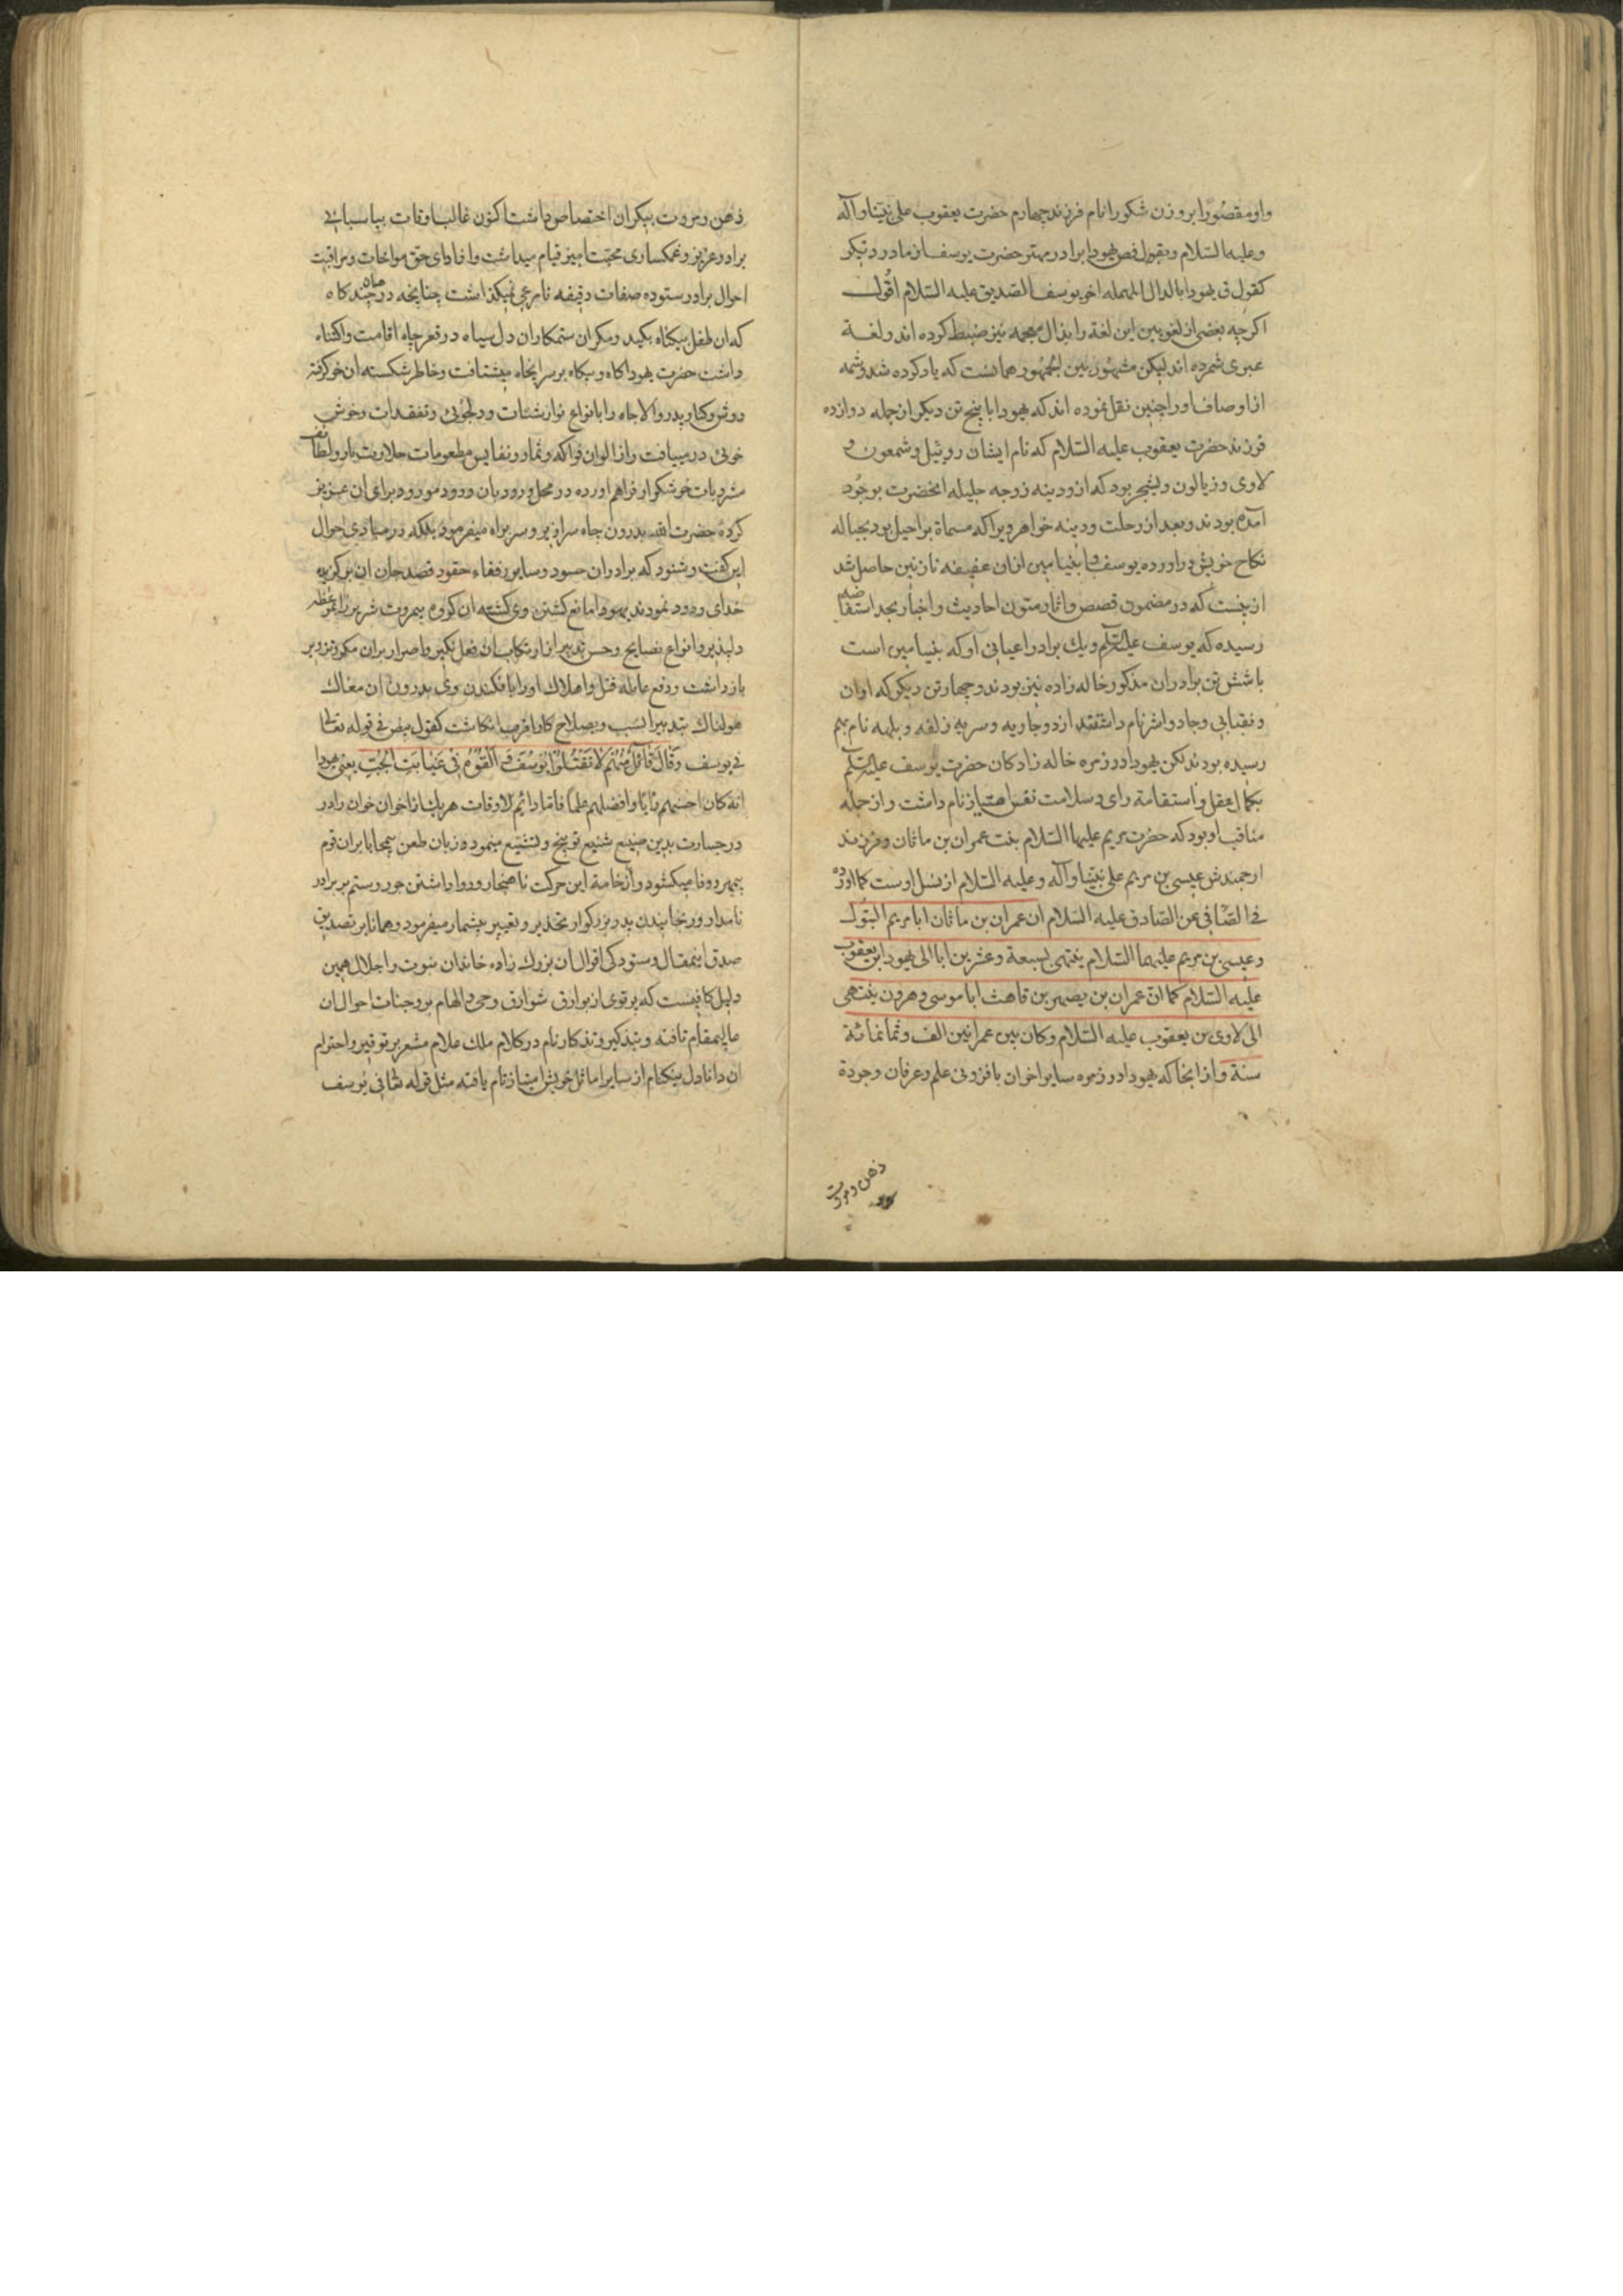 واو مقصورا بر وزن شکورا نام فرزند چهارم حضرت یعقوب علی نبینا و آله
و علیه السلام و بقول فص یهودا برادر مهتر حضرت یوسف از مادر دیگر
کقول ق یهودا بالدال المهمله اخو یوسف الصدیق علیه السلام اقول
اکرچه بعضی از لغویین این لغة را بذال معجمه نیز ضبط کرده اند و لغة
عبری شمرده اند لیکن مشهور بین الجمهور همانست که یاد کرده شد و شمه
از اوصاف او را چنین نقل نموده اند که یهودا با پنج تن دیکر از جمله دوازده
فرزند حضرت یعقوب علیه السلام که نام ایشان روبیل و شمعون و
لاوی و زیالون و یشجر بود که از ودینه زوجه جلیله انحضرت بوجود
آمده بودند و بعد از رحلت ودینه خواهر ویرا که مسماة براحیل بود بحباله
نکاح خویش دراورده یوسف و ابنیامین ازان عفیفه نازنین حاصل شد
ازینست که در مضمون قصص و اثار و متون احادیث و اخبار بحد استفاضه
رسیده که یوسف علیه السلم و یک برادر اعیانی او که بنیامین است
با شش تن برادران مذکور خاله زاده نیز بودند و چهار تن دیکر که اوان
و نفتالی و جاد و اشر نام داشتند از دو جاریه و سریه زلفه و بلهه نام بهم
رسیده بودند لکن یهودا در زمره خاله زادکان حضرت یوسف علیه السلم
بکمال عقل و استقامة رای و سلامت نفس امتیاز تام داشت و از جمله
مناقب او بود که حضرت مریم علیها السلام بنت عمران بن ماثان و فرزند
ارجمندش عیسی بن مریم علی نبینا و آله و علیه السلام از نسل اوست کما اورده
فی الصافی عن الصادق علیه السلام ان عمران بن ماثان ابا مریم البتول
و عیسی بن مریم علیهما السلام ینتهی بسبعة و عشرین ابا الی یهودا بن یعقوب
علیه السلام کما ان عمران بن یصهر بن قاهث ابا موسی و هرون ینتهی
الی لاوی بن یعقوب علیه السلام و کان بین عمرانین الف و ثمانمائة
سنة و از انجا که یهودا در زمره سایر اخوان بافزونی علم و عرفان و جودة
ذهن و مروت
ذهن و مروت بیکران اختصاص داشت اکنون غالب اوقات بپاسبانی
برادر عزیز و غمکساری محبت آمیز قیام میداشت و از ادای حق مواخات و مراقبت
احوال برادر ستوده صفات دقیقه نامرعی نمیکذاشت چنانچه در چند کاه
که ان طفل بیکناه بکید و مکر ان ستمکاران دل سیاه در قعر چاه اقامت و اکتناه
داشت حضرت یهودا کاه و بیکاه بر سر انچاه میشتافت و خاطر شکسته ان خو کرفته
دوش و کنار پدر والا جاه را بانواع نوازشات و دلجوئی و تفقدات و خوش
خوئی درمییافت و از الوان فواکه و ثمار و نفایس مطعومات حلاوت بار و لطائف
مشروبات خوشکوار فراهم اورده در محل ورود بان ورود مورود برای ان عزیز
کرده حضرت بدرون چاه سرازیر و سر براه میفرمود بلکه در مبادی احوال
این کفت و شنود که برادران حسود و سایر رفقاء حقود قصد جان ان برکزیده
خدای ودود نمودند یهودا مانع کشتن وی کشته ان کروه بیمروت شریر را بموعظه
دلپذیر و انواع نصایح و حسن تدبیر از ارتکاب ان فعل نکیر و اصرار بران مکر و تزویر
بازداشت و دفع غایله قتل و اهلاک او را بافکندن وی بدرون ان مغاک
هولناک بتدبیر انسب و بصلاح کار اقرب انکاشت کقول بیض فی قوله تعالی
فی یوسف وَقَالَ قَائِلٌ مِّنْهُمْ لَا تَقْتُلُوا یُوسُفَ وَ اَلْقُوهُ فِی غَیَابَتِ الْجُبِّ یعنی یهودا
انه کان احسنهم رایا و افضلهم علما فاما دائم الاوقات هر یک از اخوان خوان را در
در جسارت بدین صنیع شنیع توبیخ و تشنیع مینمود و زبان طعن بیمحابا بران قوم
بیمهر و وفا میکشود و از خامة این حرکت ناهنجار و روا داشتن جور و ستم بر برادر
نامدار و رنجانیدن پدر بزرکوار تحذیر و تعییر بیشمار میفرمود و همانا بر تصدیق
صدق اینمقال و ستودکی اقوال ان بزرک زاده خاندان نبوت و اجلال همین
دلیل کافیست که پرتوی از بوارق شوارق وحی و الهام بر وجنات احوال ان
عالیمقام تافته و بتذکیر و تذکار نام در کلام ملک علام مشعر بر توقیر و احترام
ان دانا دل نیکنام از سایر اماثل خویش امتیاز تام یافته مثل قوله تعالی فی یوسف